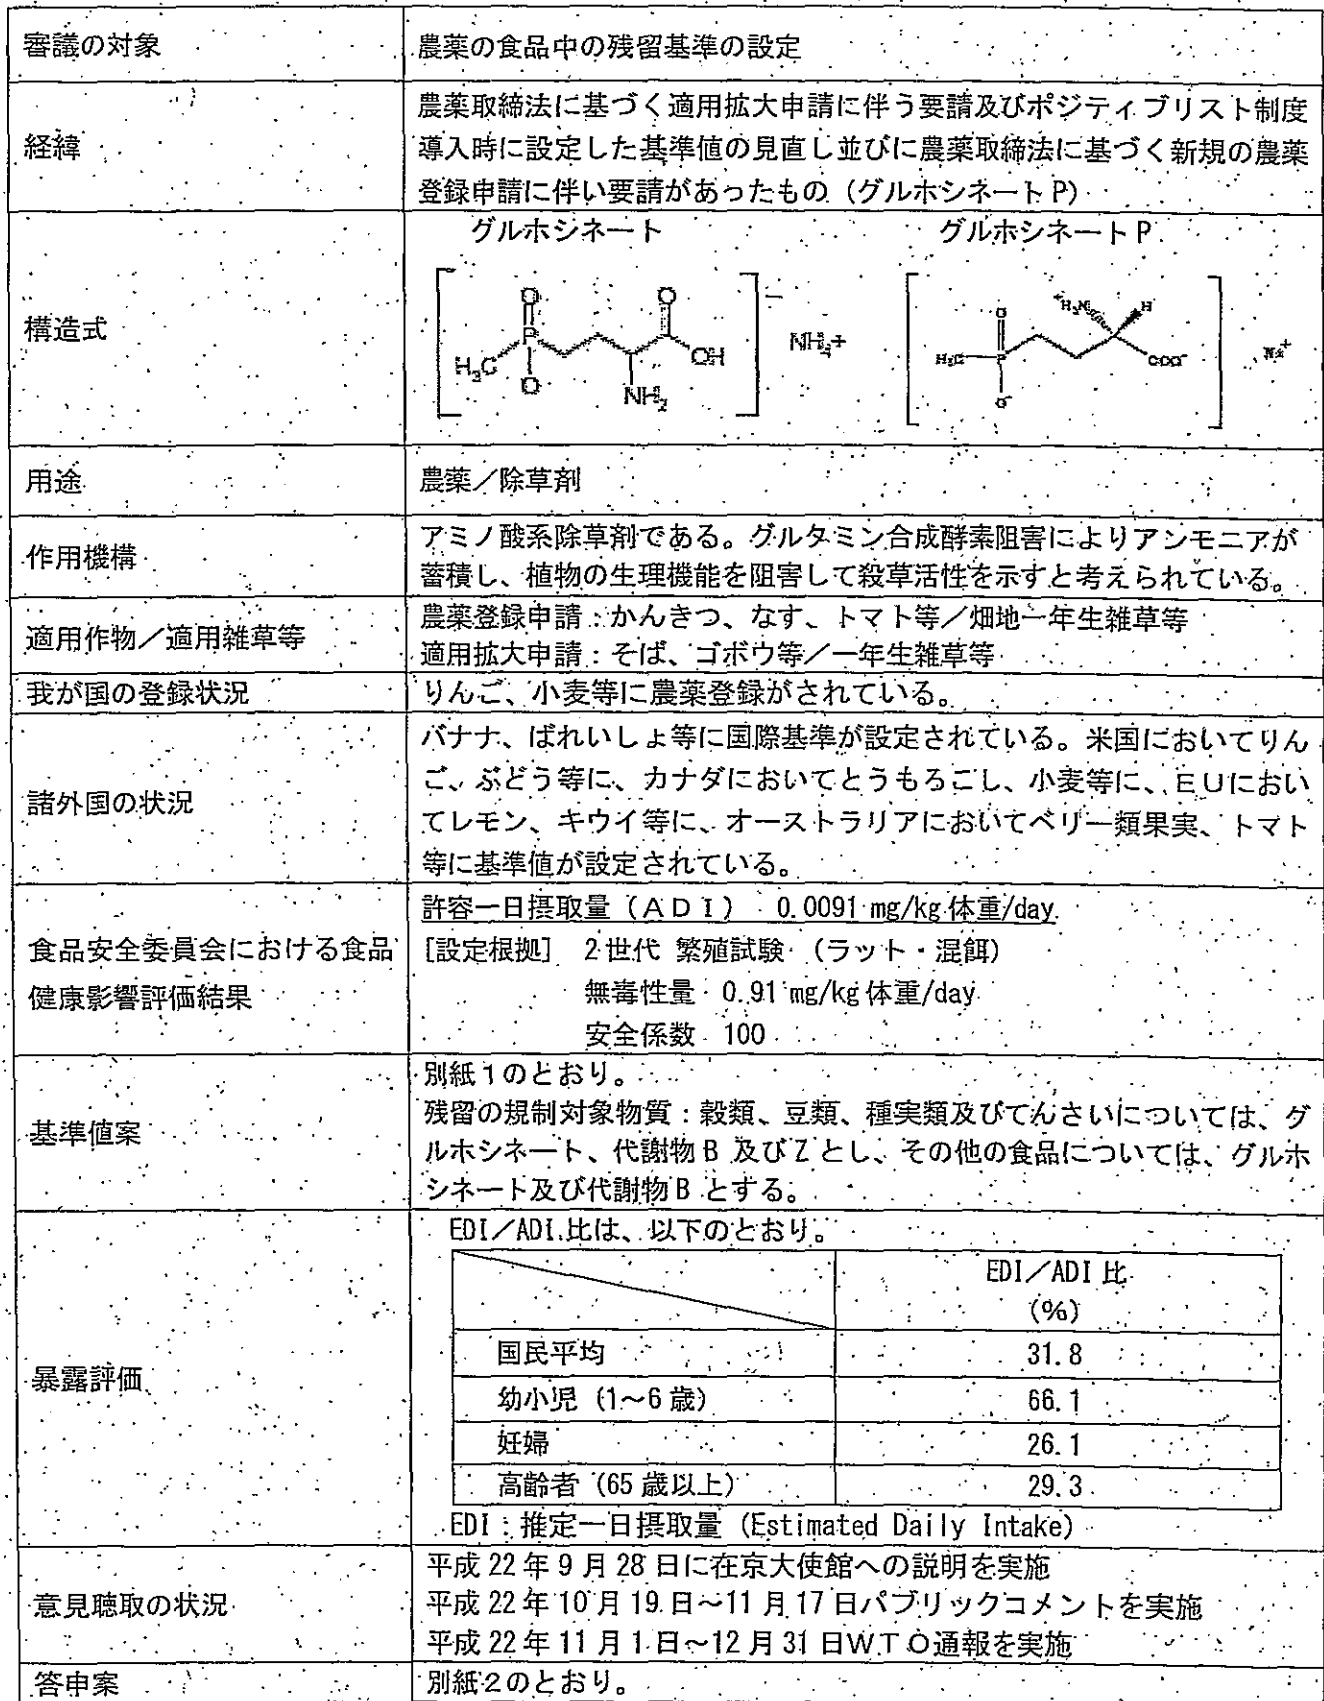 審議の対象
農薬の食品中の残留基準の設定
経緯
農薬取締法に基づく適用拡大申請に伴う要請及びポジティブリスト制度
導入時に設定した基準値の見直し並びに農薬取締法に基づく新規の農薬
登録申請に伴い要請があったもの（グルホシネートP）
構造式
グルホシネート
グルホシネートP
O
O
P
H₃C
OH
O
NH₂
−
NH₄+
⁺H₃N
H
O
H₃C
P
COO⁻
O⁻
Na⁺
用途
農薬／除草剤
作用機構
アミノ酸系除草剤である。グルタミン合成酵素阻害によりアンモニアが
蓄積し、植物の生理機能を阻害して殺草活性を示すと考えられている。
適用作物／適用雑草等
農薬登録申請：かんきつ、なす、トマト等／畑地一年生雑草等
適用拡大申請：そば、ゴボウ等／一年生雑草等
我が国の登録状況
りんご、小麦等に農薬登録がされている。
諸外国の状況
バナナ、ばれいしょ等に国際基準が設定されている。米国においてりん
ご、ぶどう等に、カナダにおいてとうもろこし、小麦等に、ＥＵにおい
てレモン、キウイ等に、オーストラリアにおいてベリー類果実、トマト
等に基準値が設定されている。
食品安全委員会における食品
健康影響評価結果
許容一日摂取量（ＡＤＩ） 0.0091 mg/kg 体重/day
[設定根拠] 2世代 繁殖試験 （ラット・混餌）
無毒性量 0.91 mg/kg 体重/day
安全係数 100
基準値案
別紙１のとおり。
残留の規制対象物質：穀類、豆類、種実類及びてんさいについては、グ
ルホシネート、代謝物B 及びZ とし、その他の食品については、グルホ
シネート及び代謝物B とする。
暴露評価
EDI／ADI 比は、以下のとおり。
EDI／ADI 比
(%)
国民平均 31.8
幼小児（1～6 歳） 66.1
妊婦 26.1
高齢者（65 歳以上） 29.3
EDI：推定一日摂取量 (Estimated Daily Intake)
意見聴取の状況
平成 22 年 9 月 28 日に在京大使館への説明を実施
平成 22 年 10 月 19 日～11 月 17 日パブリックコメントを実施
平成 22 年 11 月 1 日～12 月 31 日ＷＴＯ通報を実施
答申案
別紙２のとおり。